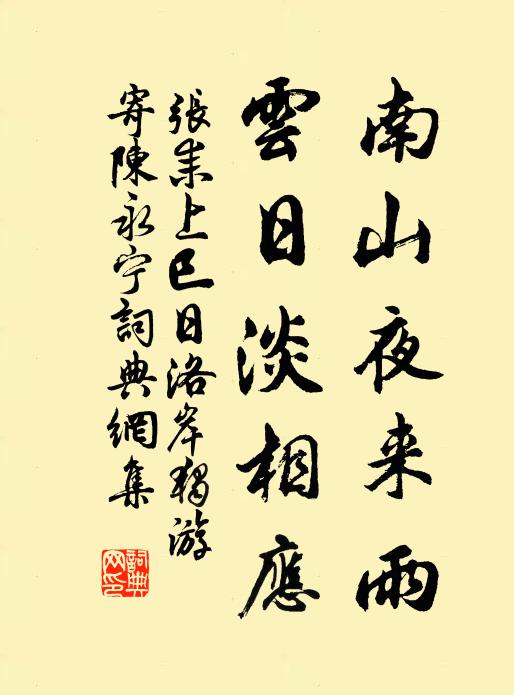 南山夜来雨
雲日淡相應
張耒上巳日洛岸獨游
寄陳永宁詞典網集
詞典網印